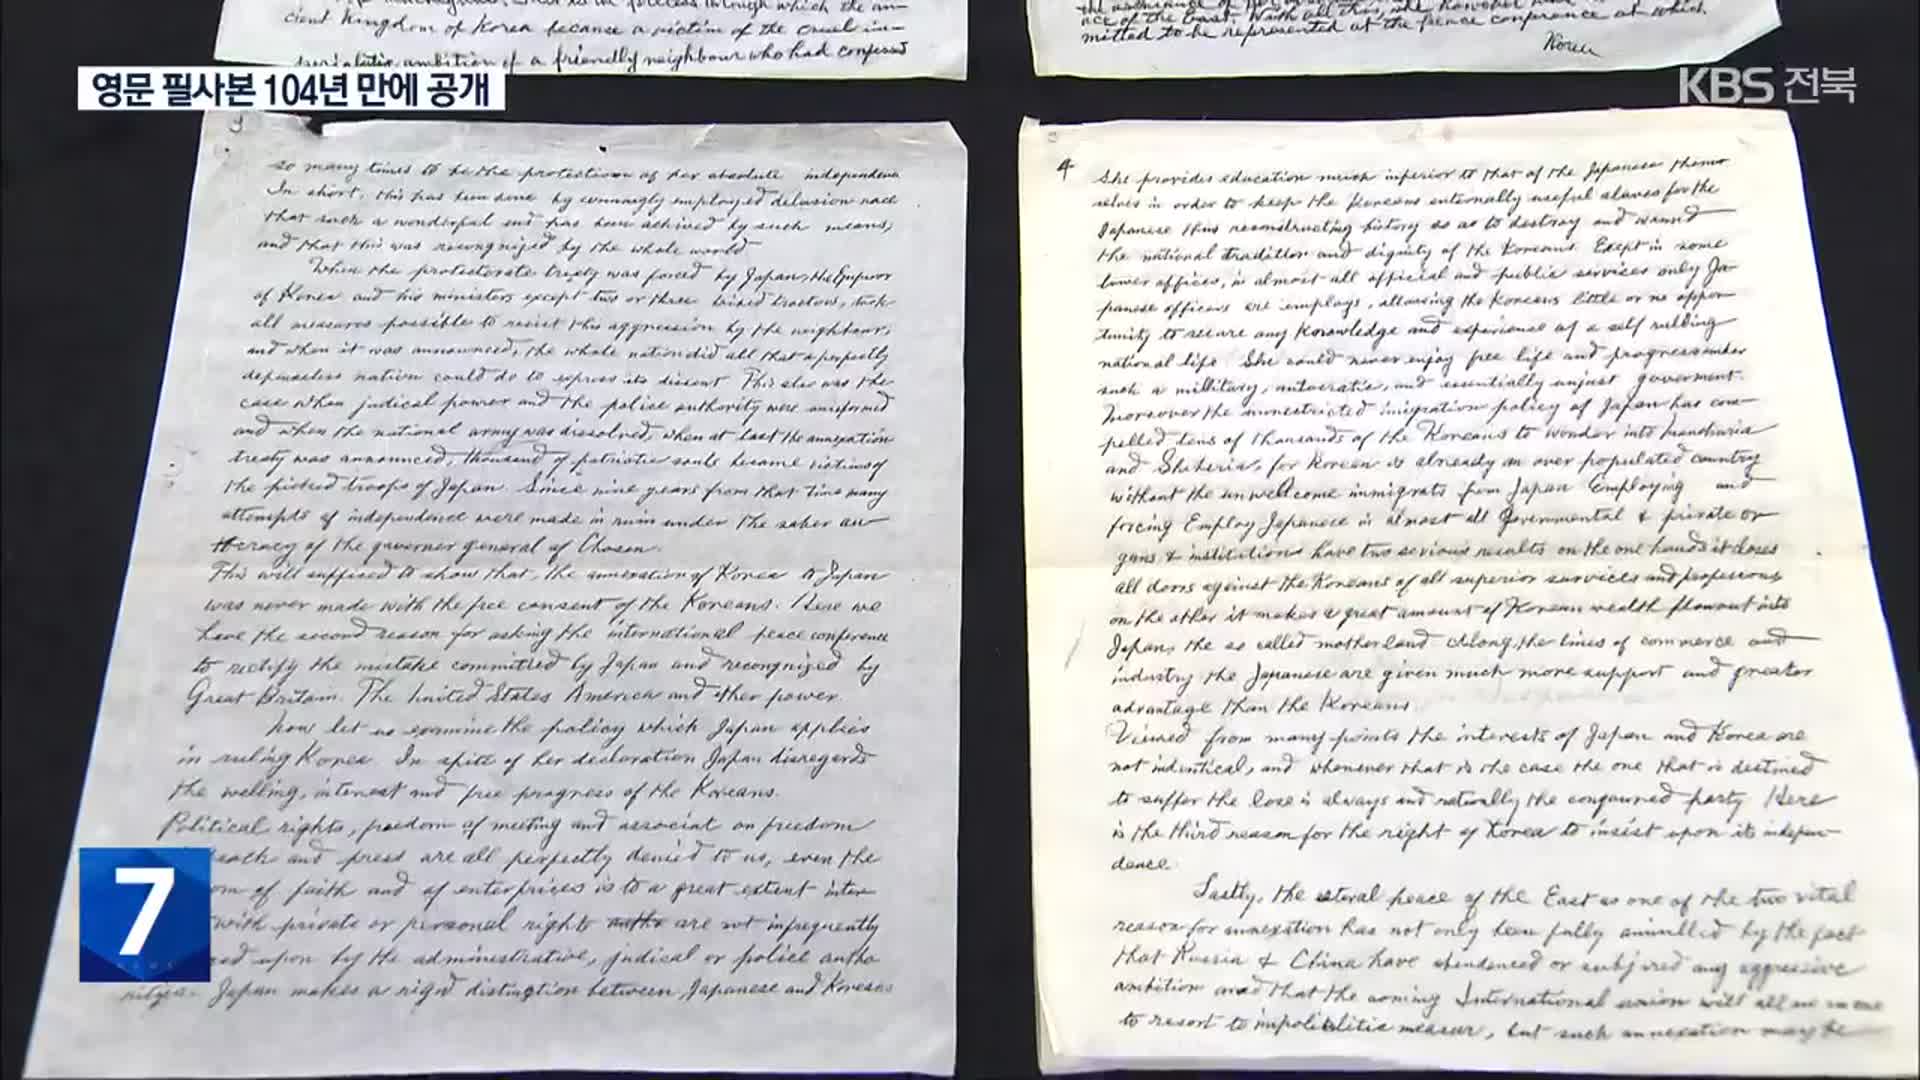 cient Kingdom of Korea became a victim of the cruel im-
ambition of a friendly neighbour who had
mitted to be represented at the peace conference at which
Korea
영문 필사본 104년 만에 공개
KBS 전북
3
so many times to be the protection of her absolute independence
In short, this has been done by cunningly employed delusion
that such a wonderful end has been achived by such means,
and that this was recongnized by the whole world
When the protectorate treaty was forced by Japan, the Emperor
of Korea and his ministers except two or three traitors, took
all measures possible to resist this aggression by the neighbour,
and when it was announced, the whole nation did all that a perfectly
defenseless nation could do to express its dissent This also was the
case when judical power and the police authority were
and when the national army was dissolved, when at last the annexation
treaty was announced, thousand of patriotic souls became victims of
the picked troops of Japan. Since nine years from that time many
attempts of independence were made in under the saber au-
tocracy of the governer general of Chosen.
This will sufficed to show that, the annexation of Korea to Japan
was never made with the free consent of the Koreans. Here we
have the second reason for asking the international peace conference
to rectify the mistake committed by Japan and recongnized by
Great Britain. The United States America and other power.
Now let us examine the policy which Japan applies
in ruling Korea. In spite of her declaration Japan disregards
the welling, interest and free progress of the Koreans.
Political rights, freedom of meeting and associat on freedom
and press are all perfectly denied to us, even the
of faith and of enterprices is to a great extent inter-
with private or personal rights are not infrequently
upon by the administrative, judical or police autho
Japan makes a rigid distinction between Japanese and Koreans
4
She provides education much inferior to that of the Japanese them
selves in order to keep the Koreans externally useful slaves for the
Japanese thus reconstructing history so as to destroy and wound
the national tradition and dignity of the Koreans. Exept in some
lower offices, in almost all official and public services only Ja-
panese officers are employs, allowing the Koreans little or no oppor-
tunity to secure any Knowledge and experience of a self rulling
national life. She could never enjoy free life and progress under
such a military, autocratic, and essentially unjust goverment.
Moreover the unrestricted imigration policy of Japan has com-
pelled tens of thousands of the Koreans to wonder into Manchuria
and Shiberia, for Korean is already an over populated country
without the unwellcome immigrats from Japan Employing and
forcing Employ Japanese in almost all Governmental & private or-
gans & institutions have two serious results on the one hands it closes
all doors against the Koreans of all superior survices and professions,
on the other it makes a great amount of Korean wealth flow out into
Japan, the so called motherland Along the lines of commerce and
industry the Japanese are given much more support and greater
advantage than the Koreans.
Viewed from many points the interests of Japan and Korea are
not indentical, and whenever that is the case the one that is destined
to suffer the lose is always and naturally the conquered party Here
is the third reason for the right of Korea to insist upon its indepen-
dence.
Lastly, the eteral peace of the East as one of the two vital
reason for annexation has not only been fully annulled by the fact
that Russia & China have abandoned or any aggressive
ambition and that the coming International union will
to resort to measure, but such annexation may be
7